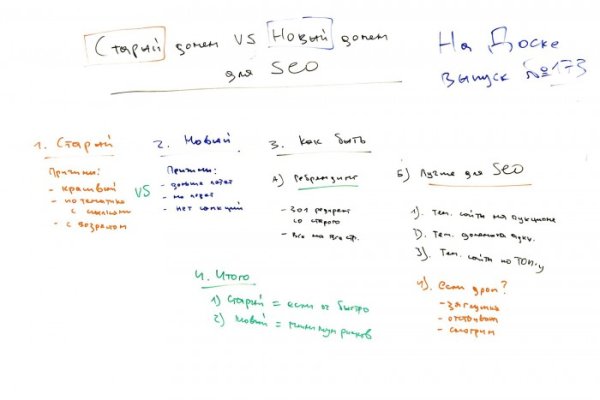 Старый домен VS Новый домен
для SEO
На Доске
Выпуск №173
1. Старый
Причины:
- красивый
- по тематике
с ссылками
- с возрастом
VS
2. Новый
Причины:
- дольше
- на
- нет санкций
3. Как быть
А) Ребрендинг
- 301 редирект
со старого
- Все на все стр.
Б) Лучше для SEO
1). Тем. сайты на аукционе
2). Тем. домены аукц.
3). Тем. сайты по ТОП-у
4). Если дроп?
- заглушка
- отстаиваем
- смотрим
4. Итого
1) Старый = если ок быстро
2) Новый = минимум рисков